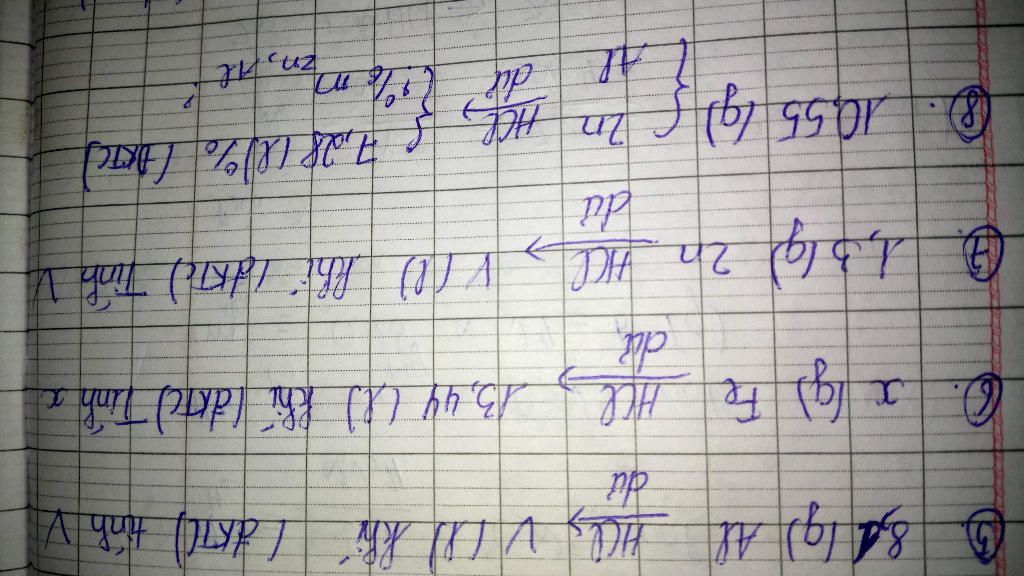 ⑤. 8,1 (g) Al HCl→ dư V (l) khí (đktc) tính V
⑥. x (g) Fe HCl→ dư 13,44 (l) khí (đktc) Tính x
⑦. 1,3 (g) Zn HCl→ dư V (l) khí (đktc) Tính V
⑧. 10,55 (g) { Zn HCl→ dư { 7,28 (l) % (đktc)
Al % m Zn, Al ?